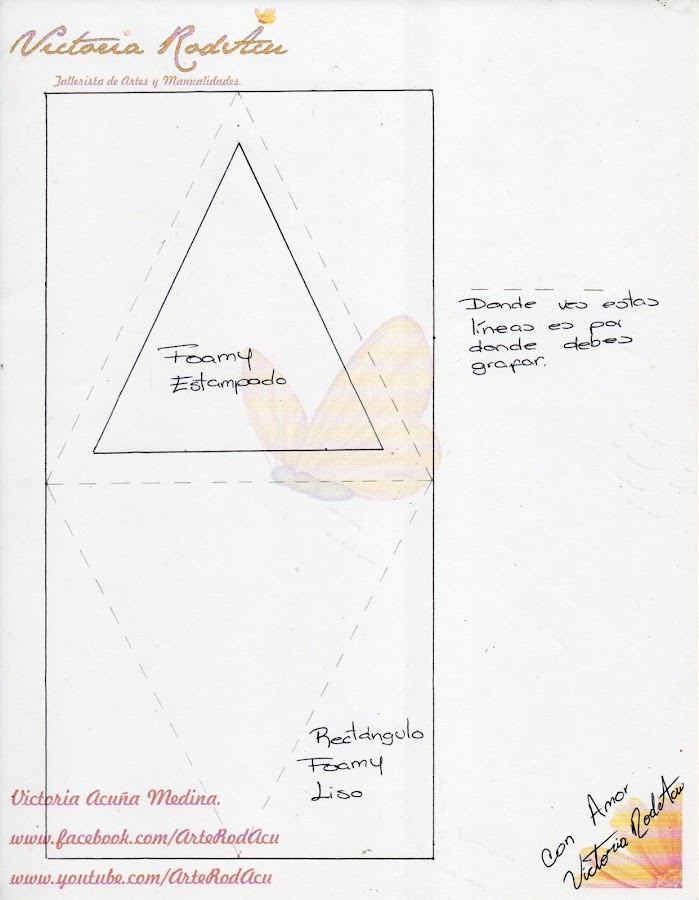 Victoria RodAcu
Tallerista de Artes y Manualidades.
Foamy
Estampado
Donde ves estas
líneas es por
donde debes
grafar.
Rectángulo
Foamy
Liso
Victoria Acuña Medina.
www.facebook.com/ArteRodAcu
www.youtube.com/ArteRodAcu
Con Amor
Victoria RodeAcu